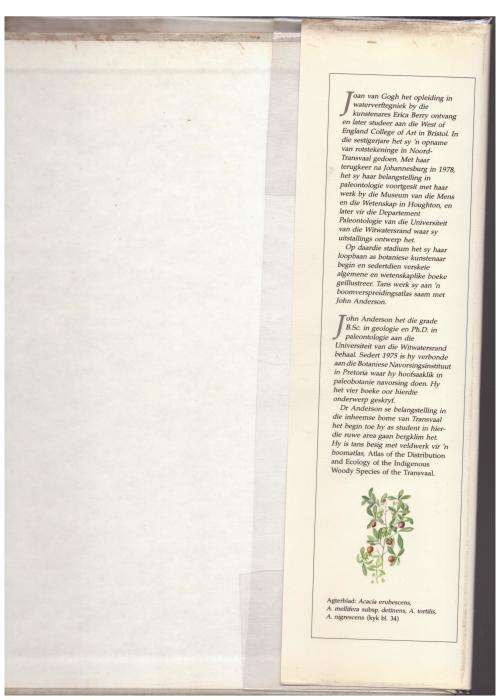 Joan van Gogh het opleiding in
waterverftegniek by die
kunstenares Erica Berry ontvang
en later studeer aan die West of
England College of Art in Bristol. In
die sestigerjare het sy 'n opname
van rotstekeninge in Noord-
Transvaal gedoen. Met haar
terugkeer na Johannesburg in 1978,
het sy haar belangstelling in
paleontologie voortgesit met haar
werk by die Museum van die Mens
en die Wetenskap in Houghton, en
later vir die Departement
Paleontologie van die Universiteit
van die Witwatersrand waar sy
uitstallings ontwerp het.
Op daardie stadium het sy haar
loopbaan as botaniese kunstenaar
begin en sedertdien verskeie
algemene en wetenskaplike boeke
geïllustreer. Tans werk sy aan 'n
boomverspreidingsatlas saam met
John Anderson.
John Anderson het die grade
B.Sc. in geologie en Ph.D. in
paleontologie aan die
Universiteit van die Witwatersrand
behaal. Sedert 1975 is hy verbonde
aan die Botaniese Navorsingsinstituut
in Pretoria waar hy hoofsaaklik in
paleobotanie navorsing doen. Hy
het vier boeke oor hierdie
onderwerp geskryf.
Dr Anderson se belangstelling in
die inheemse bome van Transvaal
het begin toe hy as student in hier-
die ruwe area gaan bergklim het.
Hy is tans besig met veldwerk vir 'n
boomatlas, Atlas of the Distribution
and Ecology of the Indigenous
Woody Species of the Transvaal.
Agterblad: Acacia erubescens,
A. mellifera subsp. detinens, A. tortilis,
A. nigrescens (kyk bl. 34)